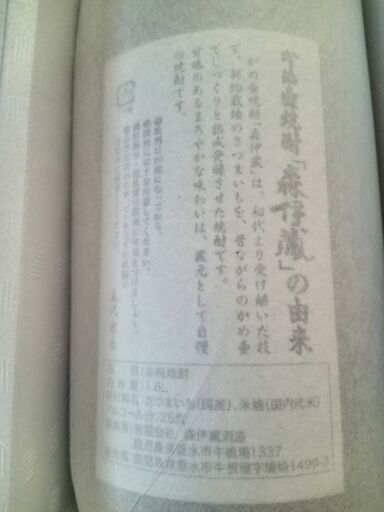 かめ壺焼酎「森伊蔵」の由来
かめ壺焼酎「森伊蔵」は、初代より受け継いだ技
で、契約栽培のさつまいもを、昔ながらのかめ壺
でじっくりと熟成発酵させた焼酎です。
甘味のあるまろやかな味わいは、蔵元として自慢
の焼酎です。
五代当主
品目:本格焼酎
容量:1.8L
原材料名:さつまいも(国産)、米麹(国内産米)
アルコール分:25度
有限会社 森伊蔵酒造
鹿児島県垂水市牛根境1337
鹿児島県垂水市牛根麓字磯脇1499-3